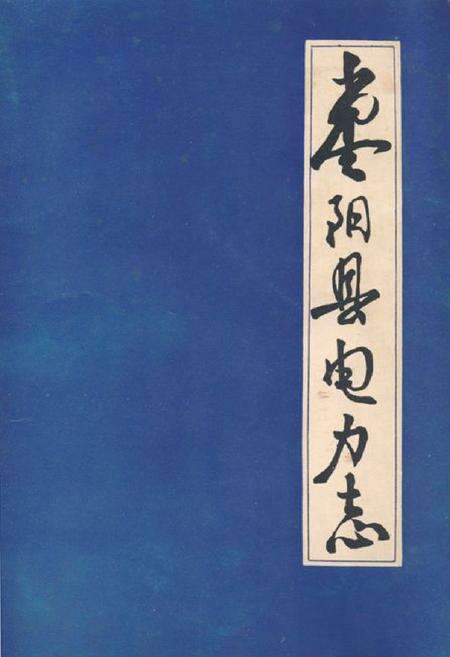 枣阳县电力志